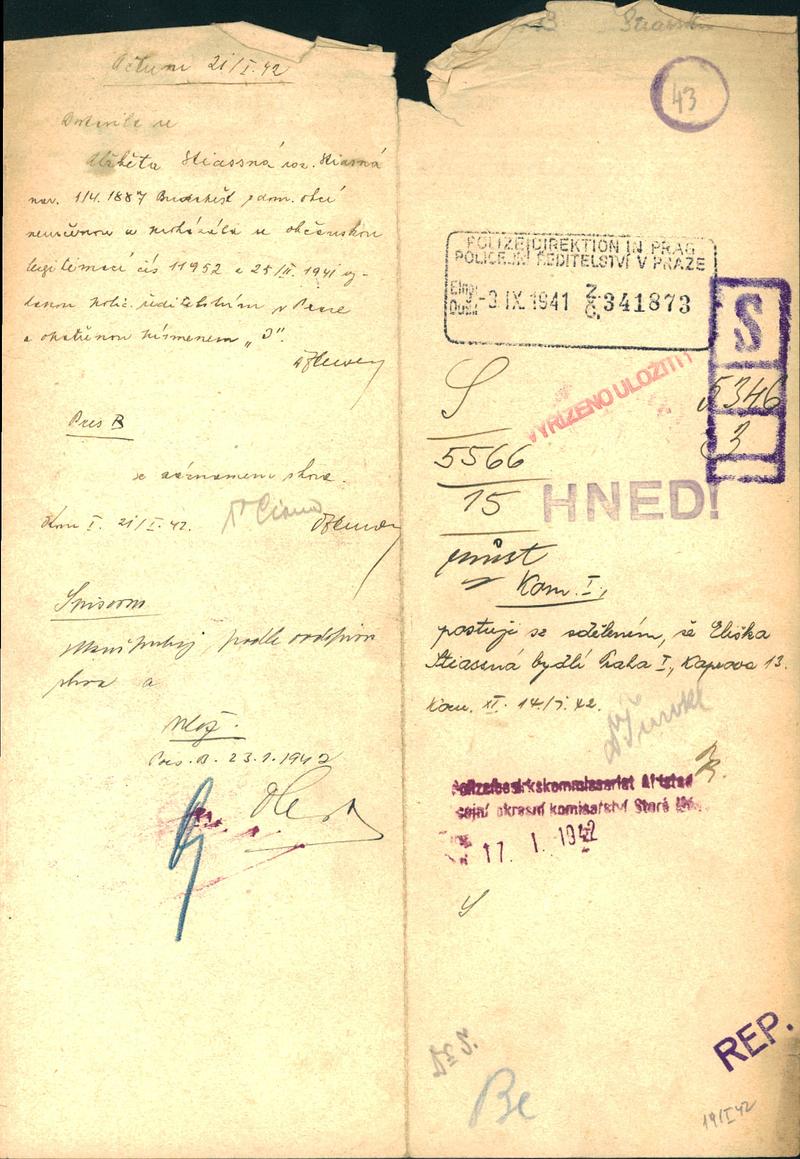 21/I. 42
Dostavila se
Alžběta Stiassná roz. Stiasná
nar. 1/4. 1887 Budapešť dom. obcí
neurčenou a prokázala se občanskou
legitimací čís 11952 z 25/II. 1941 vy-
danou polic. ředitelstvím v Praze
a opatřenou písmenem „J".
Pres B
se záznamem shora.
Kom I. 21/I. 42.
Spisovna
podle
shora a
vlož.
Pres. B. 23.1.1942
43
POLIZEIDIREKTION IN PRAG
POLICEJNÍ ŘEDITELSTVÍ V PRAZE
-3. IX. 1941 341873
S
5346
3
VYŘÍZENO ULOŽITI!
S
5566
15
HNED!
Kom. I.,
postupuji se sdělením, že Eliška
Stiassná bydlí Praha I., Kaprova 13.
Kom. XI. 14/I. 42.
Polizeibezirkskommissariat Altstadt
okresní komisařství Staré
17. 1. 1942
Be
REP.
19/I 42